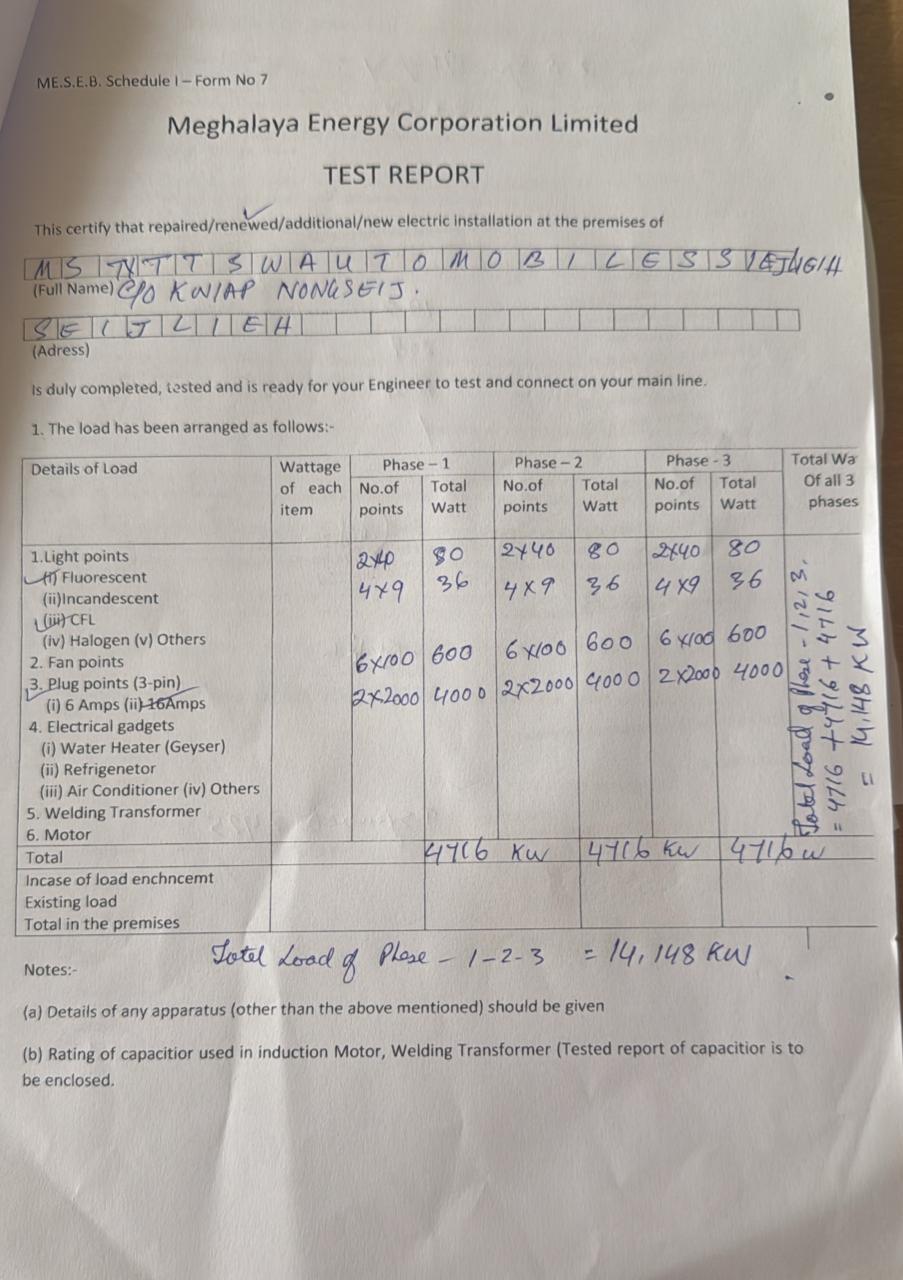 ME.S.E.B. Schedule I – Form No 7
Meghalaya Energy Corporation Limited
TEST REPORT
This certify that repaired/renewed/additional/new electric installation at the premises of
MS T S W AUTOMOBILES
(Full Name) C/O NONGSEIJ.
SEIJLIEH
(Adress)
Is duly completed, tested and is ready for your Engineer to test and connect on your main line.
1. The load has been arranged as follows:-
Details of Load Wattage of each item Phase – 1 Phase – 2 Phase - 3 Total Wa Of all 3 phases
No.of points Total Watt No.of points Total Watt No.of points Total Watt
1.Light points 2x40 80 2x40 80 2x40 80
(i) Fluorescent 4x9 36 4x9 36 4x9 36
(ii)Incandescent
(iii) CFL
(iv) Halogen (v) Others
2. Fan points 6x100 600 6x100 600 6x100 600
3. Plug points (3-pin) 2x2000 4000 2x2000 4000 2x2000 4000
(i) 6 Amps (ii) 16Amps
4. Electrical gadgets
(i) Water Heater (Geyser)
(ii) Refrigenetor
(iii) Air Conditioner (iv) Others
5. Welding Transformer
6. Motor
Total Load of Phase - 1,2,3.
= 4716 + 4716 + 4716
= 14,148 KW
Total 4716 KW 4716 KW 4716 W
Incase of load enchncemt
Existing load
Total in the premises
Total Load of Phase - 1-2-3 = 14,148 KW
Notes:-
(a) Details of any apparatus (other than the above mentioned) should be given
(b) Rating of capacitior used in induction Motor, Welding Transformer (Tested report of capacitior is to
be enclosed.